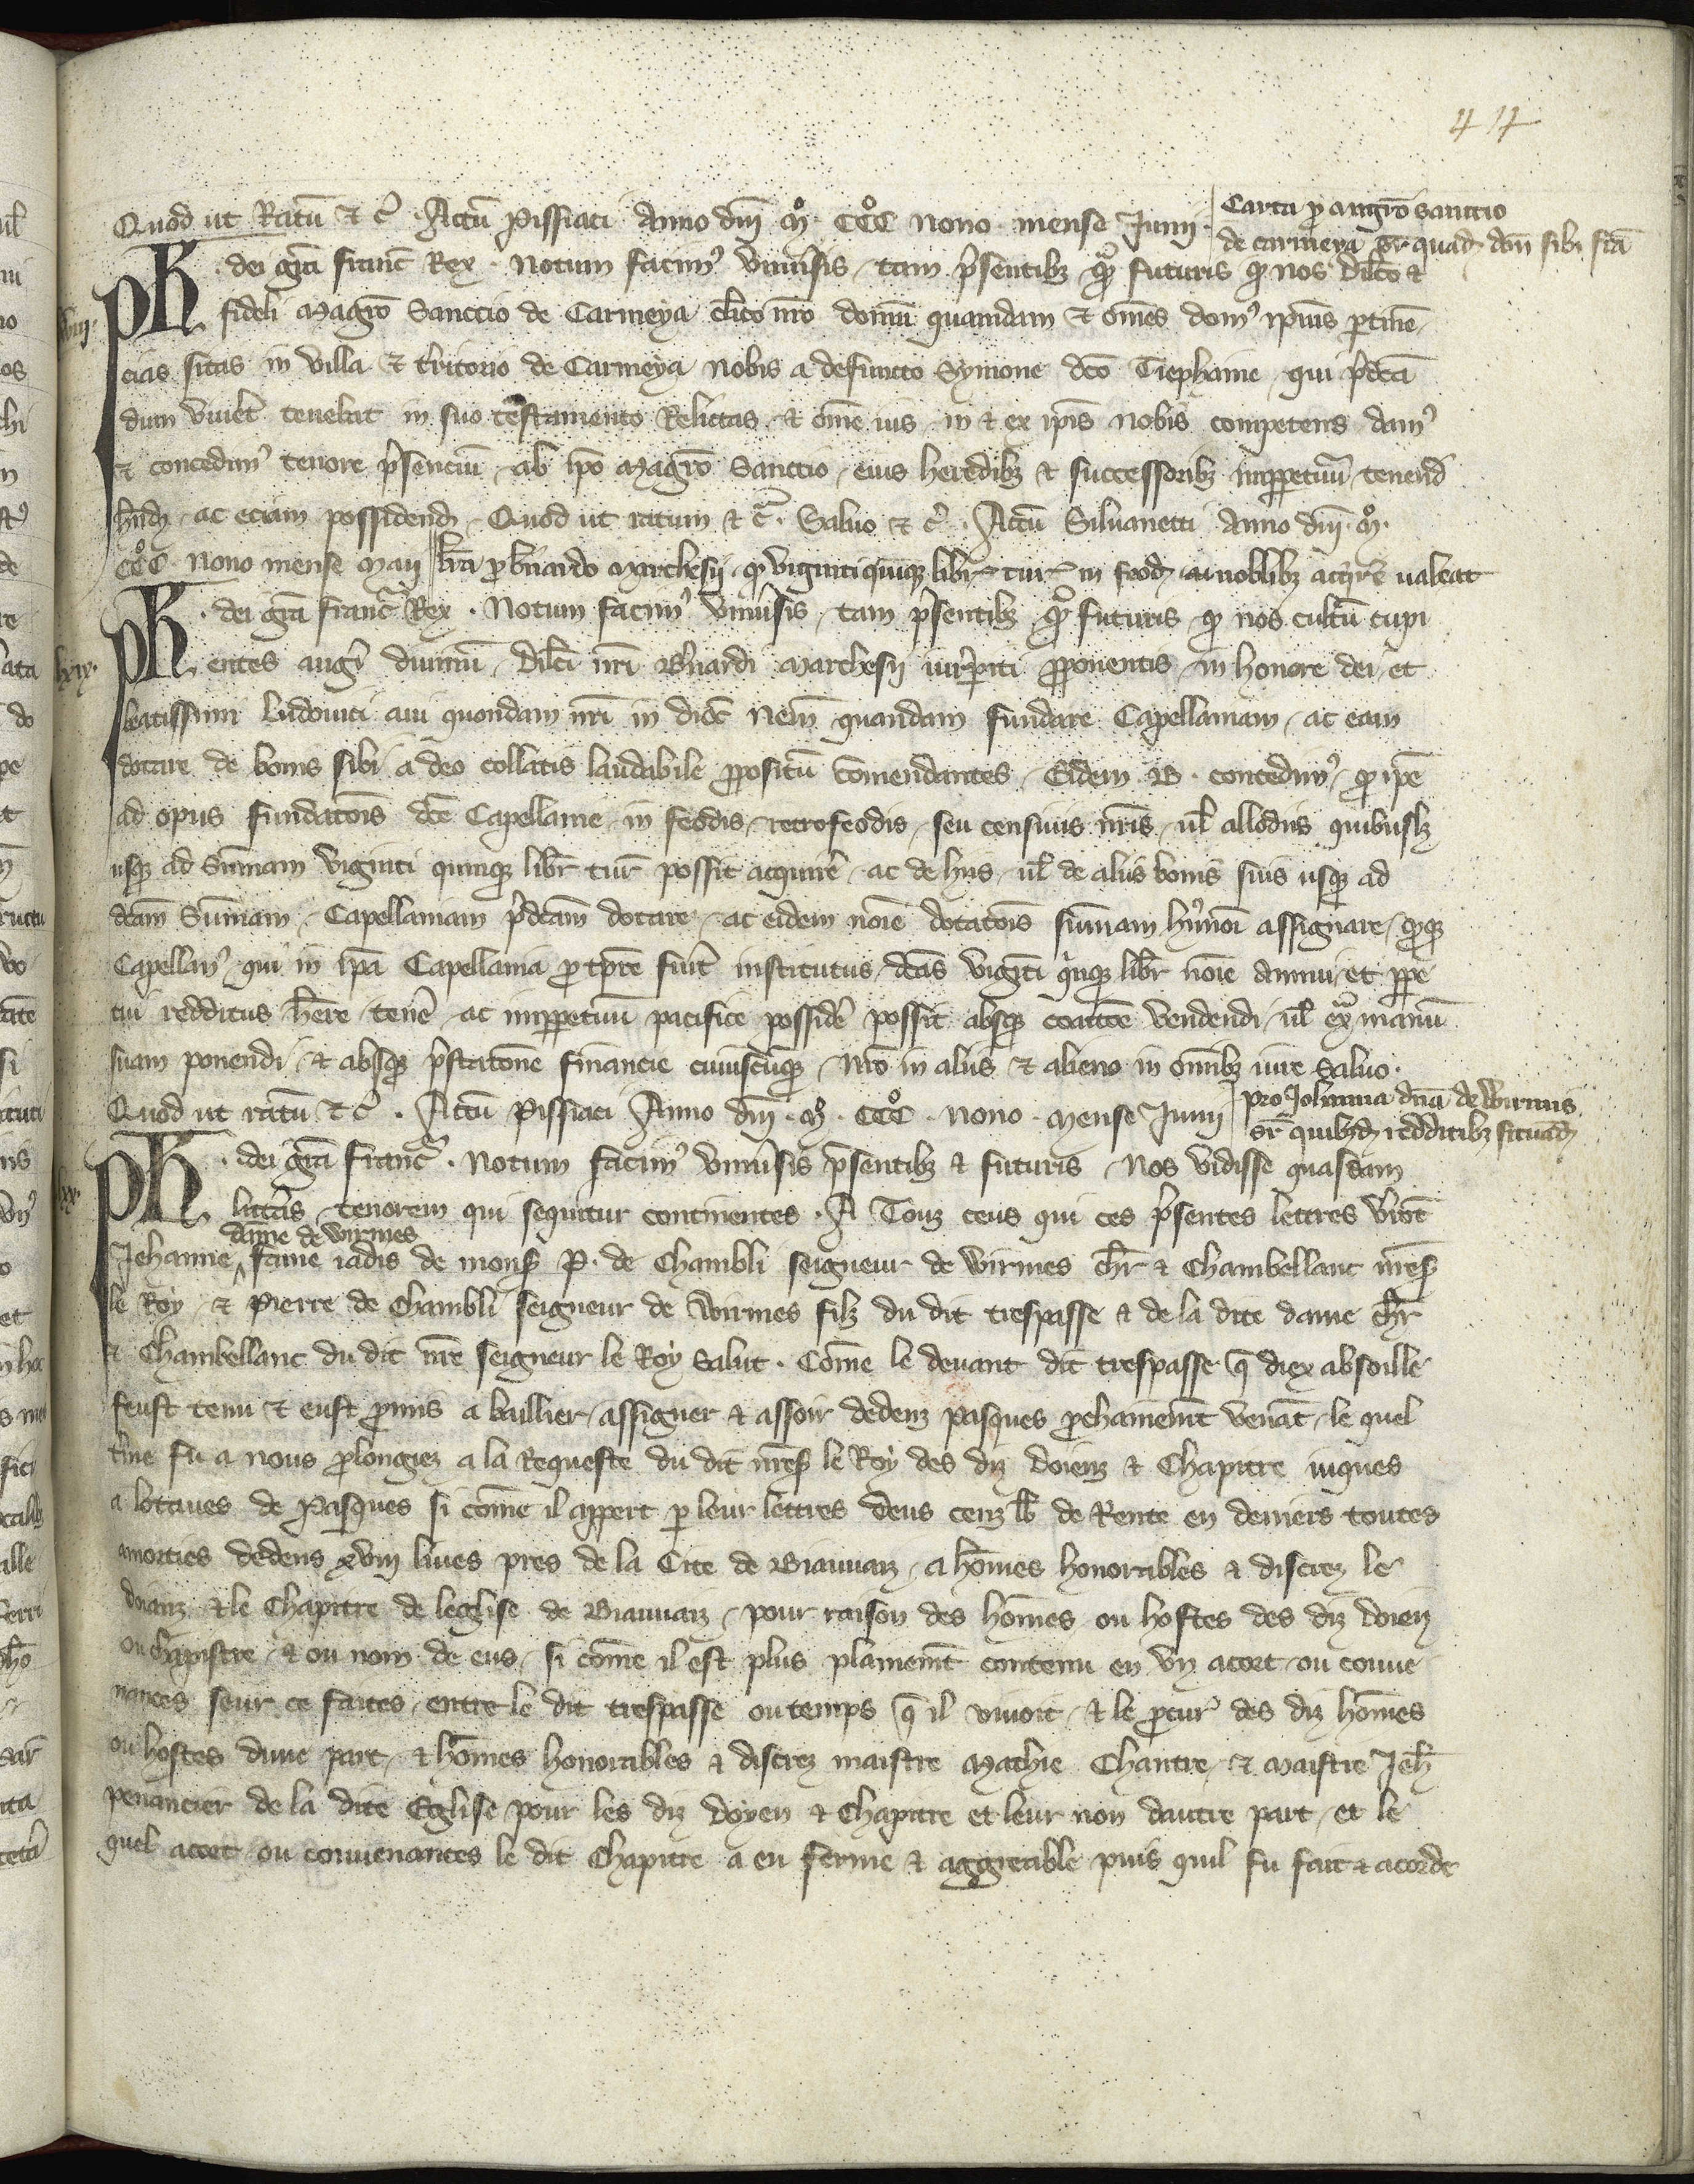 44
Quod ut Ratū & c̄ . Actū Pissiaci Anno dnī mº CCCº nono mense Junij
Carta ꝓ magrō Sanccio
de carmeya sr̄ quadā dom̄ sibi fcā
lxviij.
Ph. dei grā franc̄ Rex . Notum facim⁹ vniu̾sis tam p̄sentibꝫ qͣꝫ futuris qͩ nos dilc̄o &
fideli Magrō Sanccio de Carmeya cl̄ico nr̄o domū quamdam & om̄es dom⁹ ip̄ius ꝑtinē
cias sitas in villa & t̾ritorio de Carmeya nobis a defuncto Symone dc̄o Tiephaine qui p̄dcā
dum viu̾et tenebat in suo testamento Relictas & om̄e ius in & ex ip̄is nobis competens dam⁹
& concedim⁹ tenore p̄senciū ab ip̄o Magrō Sanccio eius heredibꝫ & successoribꝫ imppetuū tenend̄
hn̄dā ac eciam possidendā Quod ut ratum & c̄ . Saluo & c̄ . Actū Siluanecti Anno dnī . mº .
CCCº nono mense Maij
lr̄a ꝓ b̾nardo Marchesij . qͩ viginti quinqꝫ libr̄ tur̄ in feod̄ ac nobilibꝫ acq̾rere ualeat
lxix.
Ph. dei grā franc̄ Rex . Notum facim⁹ vniu̾sis tam p̄sentibꝫ qͣꝫ futuris qͩ nos cultū cupi
entes augr̄i diuinū dilc̄i nr̄i B̾nardi Marchesij iur̾ꝑiti ꝓponentis in honore dei et
beatissimi Ludouici aui quondam nr̄i in dioc̄ Nem̄ quandam fundare Capellaniam ac eam
dotare de bonis sibi a deo collatis laudabile ꝓpositū com̄endantes Eidem B . concedim⁹ qͩ ip̄e
ad opus fundacōis dc̄e Capellanie in feodis retrofeodis seu censiuis nr̄is ul̄ allodiis quibuslꝫ
usqꝫ ad Sum̄am viginti quinqꝫ libr̄ tur̄ possit acquir̾e ac de hijs ul̄ de aliis bonis suis usqꝫ ad
dc̄am Sum̄am Capellaniam p̄dcām dotare ac eidem noīe dotacōis sum̄am hui⁹moī assignare qͩqꝫ
Capellan⁹ qui in ip̄a Capellania ꝓ tꝑe fu̾it institutus dc̄as vigīti q̾nqꝫ libr̄ noīe annui et ꝑpe
tui redditus h̄ere ten̾e ac imppetuū pacifice possid̾e possit absqꝫ coactōe vendendi ul̄ exͣ manū
suam ponendi & absqꝫ p̄stacōne financie cuiuscūqꝫ nr̄o in aliis & alieno in om̄ibꝫ iure saluo .
Quod ut ratū & c̄ . Actū Pissiaci Anno dnī . mº . CCCº . nono . mense Junij
pro Johanna dn̄a de Wirmis
sr̄ quibꝫdā redditibꝫ situādā
lxx.
Ph. dei grā Franc̄ . Notum facim⁹ vniu̾sis p̄sentibꝫ & futuris Nos vidisse quasdam
litt̾as tenorem qui sequitur continentes . A Touz ceus qui ces p̄sentes lettres v̾rōt
dame de Wirmes
Jehanne ^ fame iadis de monsʳ P. de Chambli seigneur de Wirmes chr̄ & Chambellanc nr̄esʳ
le Roy & Pierre de Chambli seigneur de Wirmes filz du dit trespasse & de la dite dame chr̄
& Chambellanc du dit nr̄e seigneur le Roy Salut . Cōme le deuant dit trespasse q̄ diex absoille
feust tenu & eust ꝓmis a baillier assigner & assoir dedenz Pasques ꝓchainemt̄ venāt le quel
t̾me fu a nous ꝓlongiez a la Requeste du dit nr̄esʳ le Roy des diz doienz & Chapitre iuques
a lotaues de Pasques si cōme il appert ꝑ leur lettres deus cenz lb̄ de Rente en deniers toutes
amorties dedens xviij liues pres de la Cite de Biauuaiz a hōmes honorables & discrez le
doianz & le Chapitre de leglise de Biauuaiz pour raison des hōmes ou hostes des diz doien
ou chapistre & ou nom de eus si cōme il est plus plainemt̄ contenu en vn acort ou conue
nances seur ce faites entre le dit trespasse ou temps q̄ il viuoit & le ꝓcur̾ des diz hōmes
ou hostes dune part & hōmes honorables & discrez maistre Mathie Chantre & Maistre Jeh̄
penancier de la dite Eglise pour les diz doyen & Chapitre et leur non dautre part et le
quel acort ou conuenances le dit Chapitre a eu ferme & aggreable puis quil fu fait & acorde